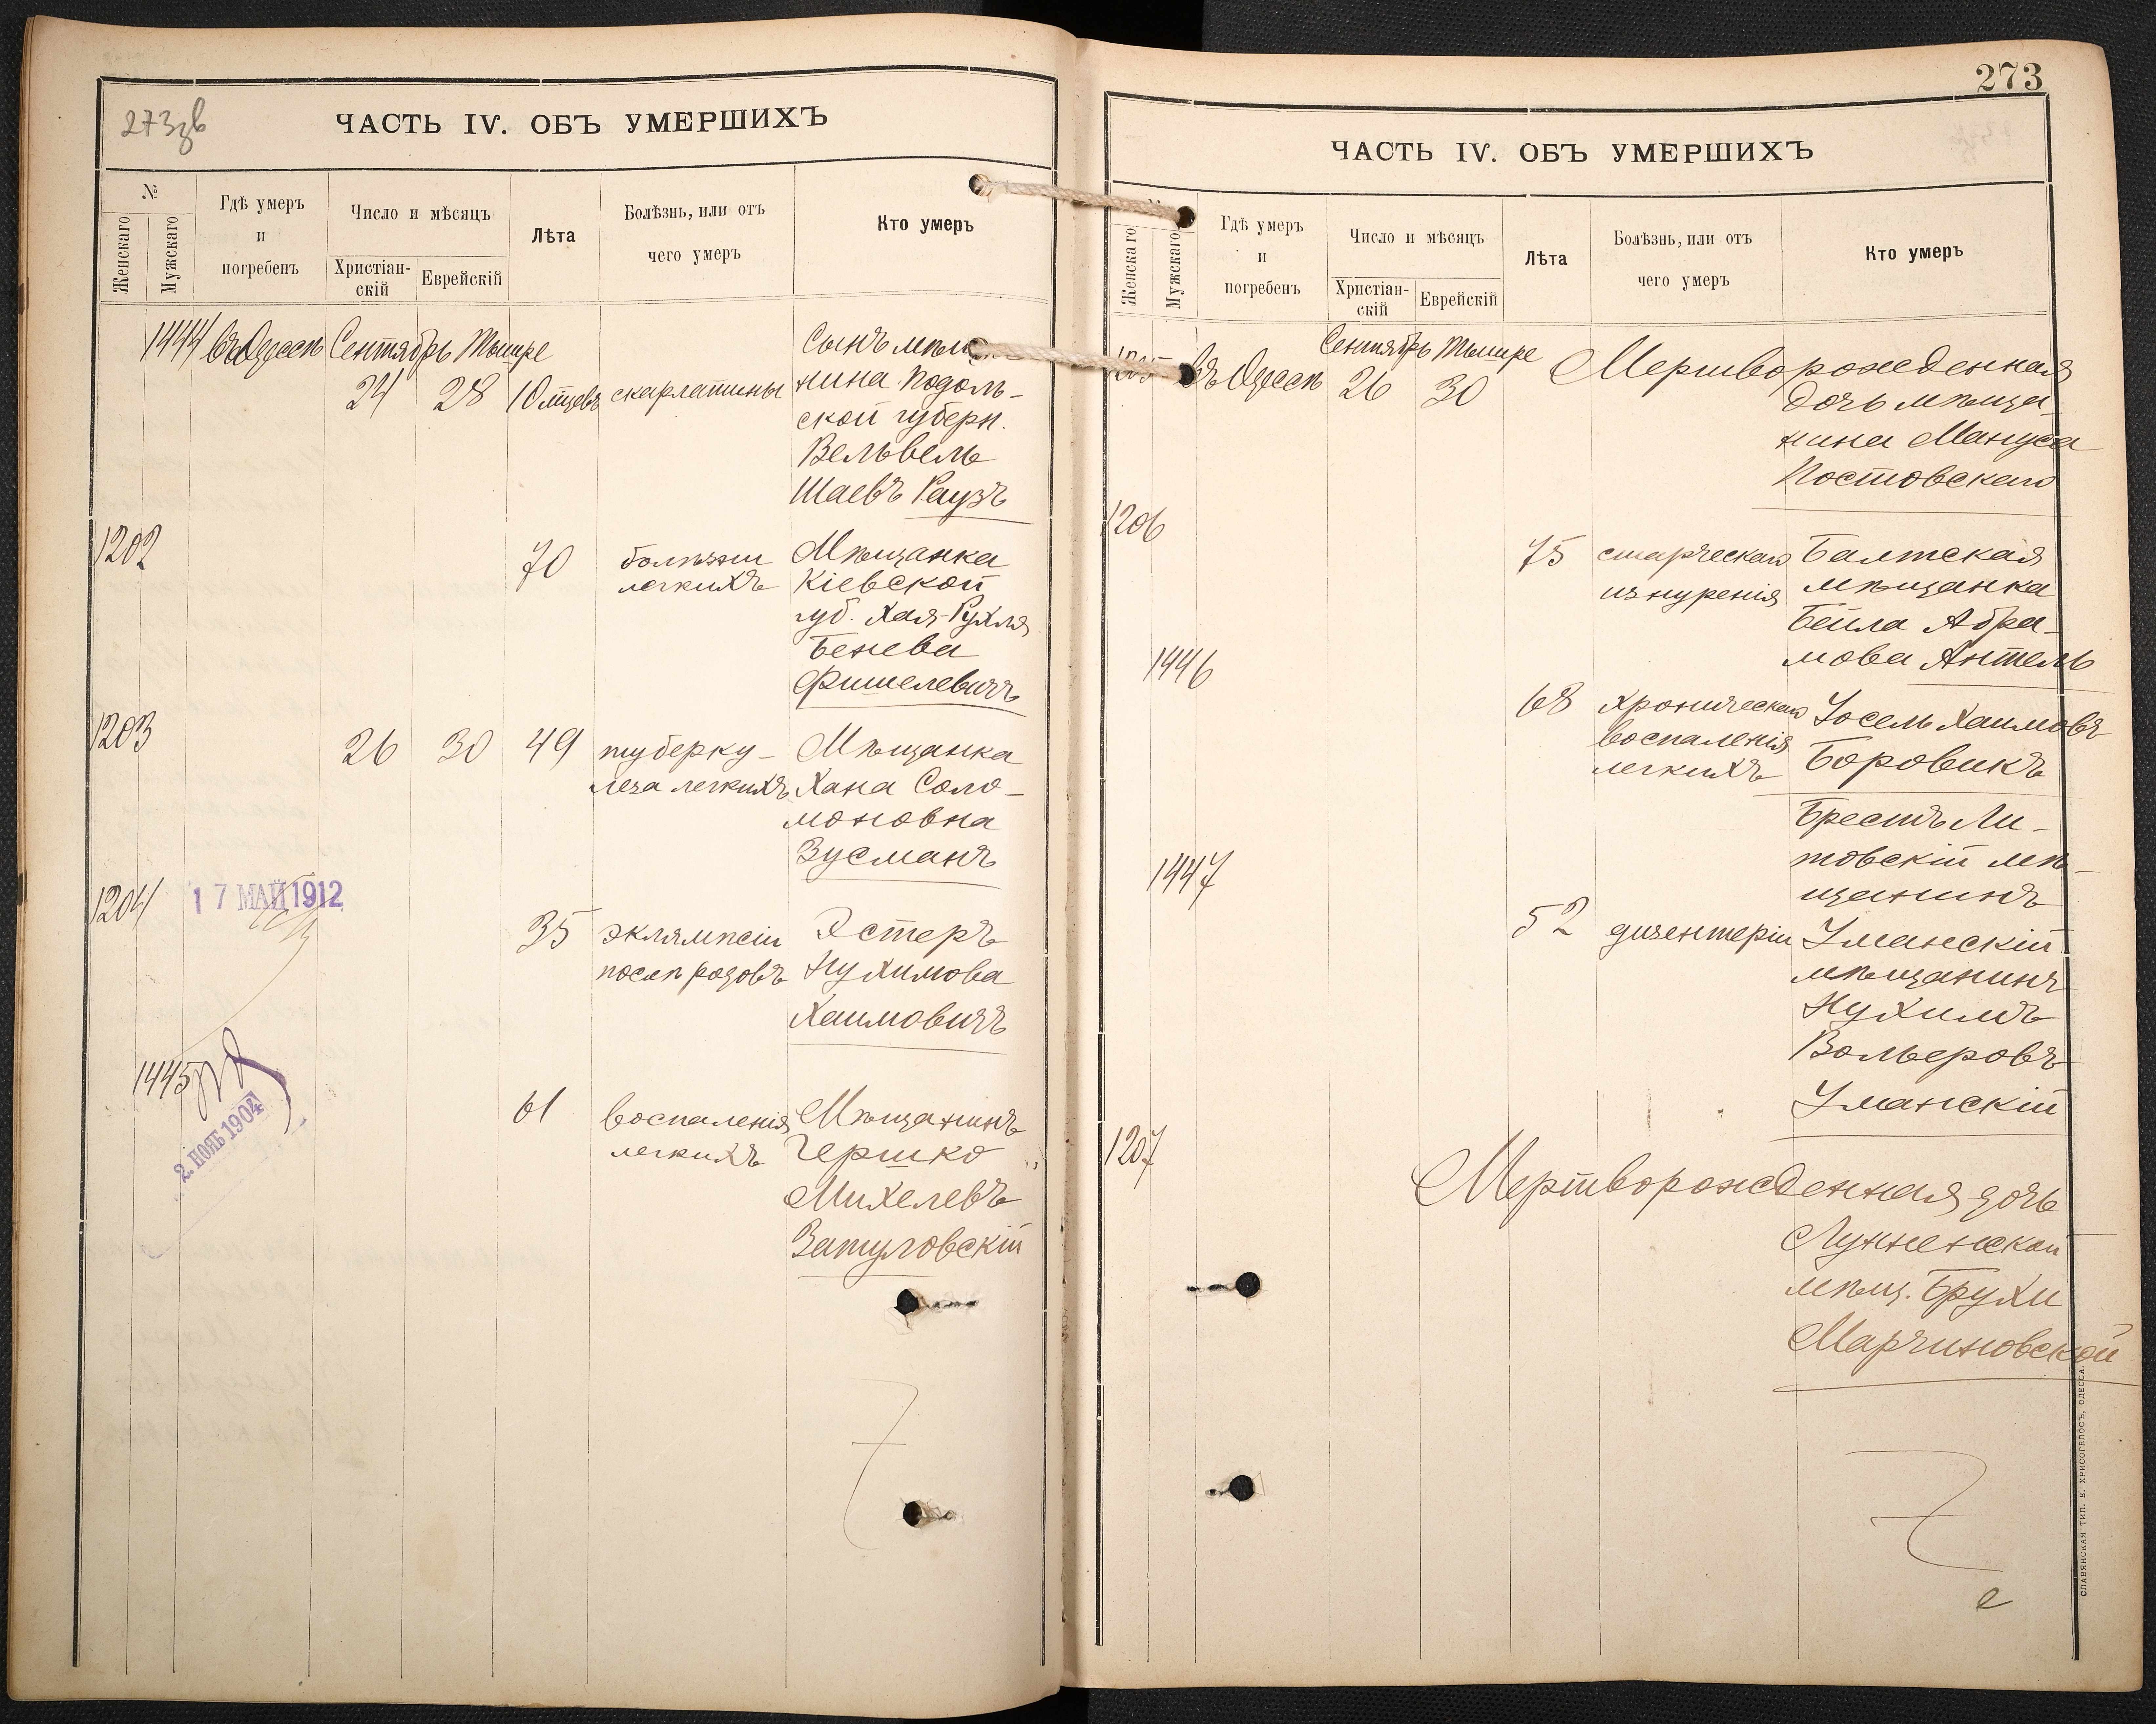 273зв
ЧАСТЬ IV. ОБЪ УМЕРШИХЪ
№
Женскаго
Мужскаго
Гдѣ умеръ
и
погребенъ
Число и мѣсяцъ
Христіан-
скій
Еврейскій
Лѣта
Болѣзнь, или отъ
чего умеръ
Кто умеръ
1444 въ Одессѣ Сентябрь Тышре
24 28 10 мцевъ скарлатины
Сынъ
нина Подоль-
ской губерн.
Вельвель
Шаевъ Раузъ
1202
70 болѣзни
легкихъ
Мѣщанка
Кіевской
губ. Хая-Рухля
Бенева
Фишелевичъ
1203
26 30 49 туберку-
леза легкихъ
Мѣщанка
Хана Соло-
моновна
Зусманъ
1204
17 МАЙ 1912
35 эклямпсіи
послѣ родовъ
Эстеръ
Нухимова
Хаимовичъ
1445
2 НОЯБ 1904
61 воспаленія
легкихъ
Мѣщанинъ
Гершко
Михелевъ
Затуловскій
273
ЧАСТЬ IV. ОБЪ УМЕРШИХЪ
Женскаго
Мужскаго
Гдѣ умеръ
и
погребенъ
Число и мѣсяцъ
Христіан-
скій
Еврейскій
Лѣта
Болѣзнь, или отъ
чего умеръ
Кто умеръ
1205 въ Одессѣ Сентябрь Тышре
26 30
Мертворожденная
дочь мѣща-
нина Мануса
Постовскаго
1206
75 старческаго
изнуренія
Балтская
мѣщанка
Бейла Абра-
мова Антель
1446
68 хроническаго
воспаленія
легкихъ
Іосель Хаимовъ
Боровикъ
Брестъ Ли-
товскій мѣ-
щанинъ
1447
52 дизентеріи
Уманскій
мѣщанинъ
Нухимъ
Вольеровъ
Уманскій
1207
Мертворожденная дочь
мѣщ. Брухи
Марчиновской
СЛАВЯНСКАЯ ТИП. Е. ХРИСОГЕЛОСЪ, ОДЕССА.